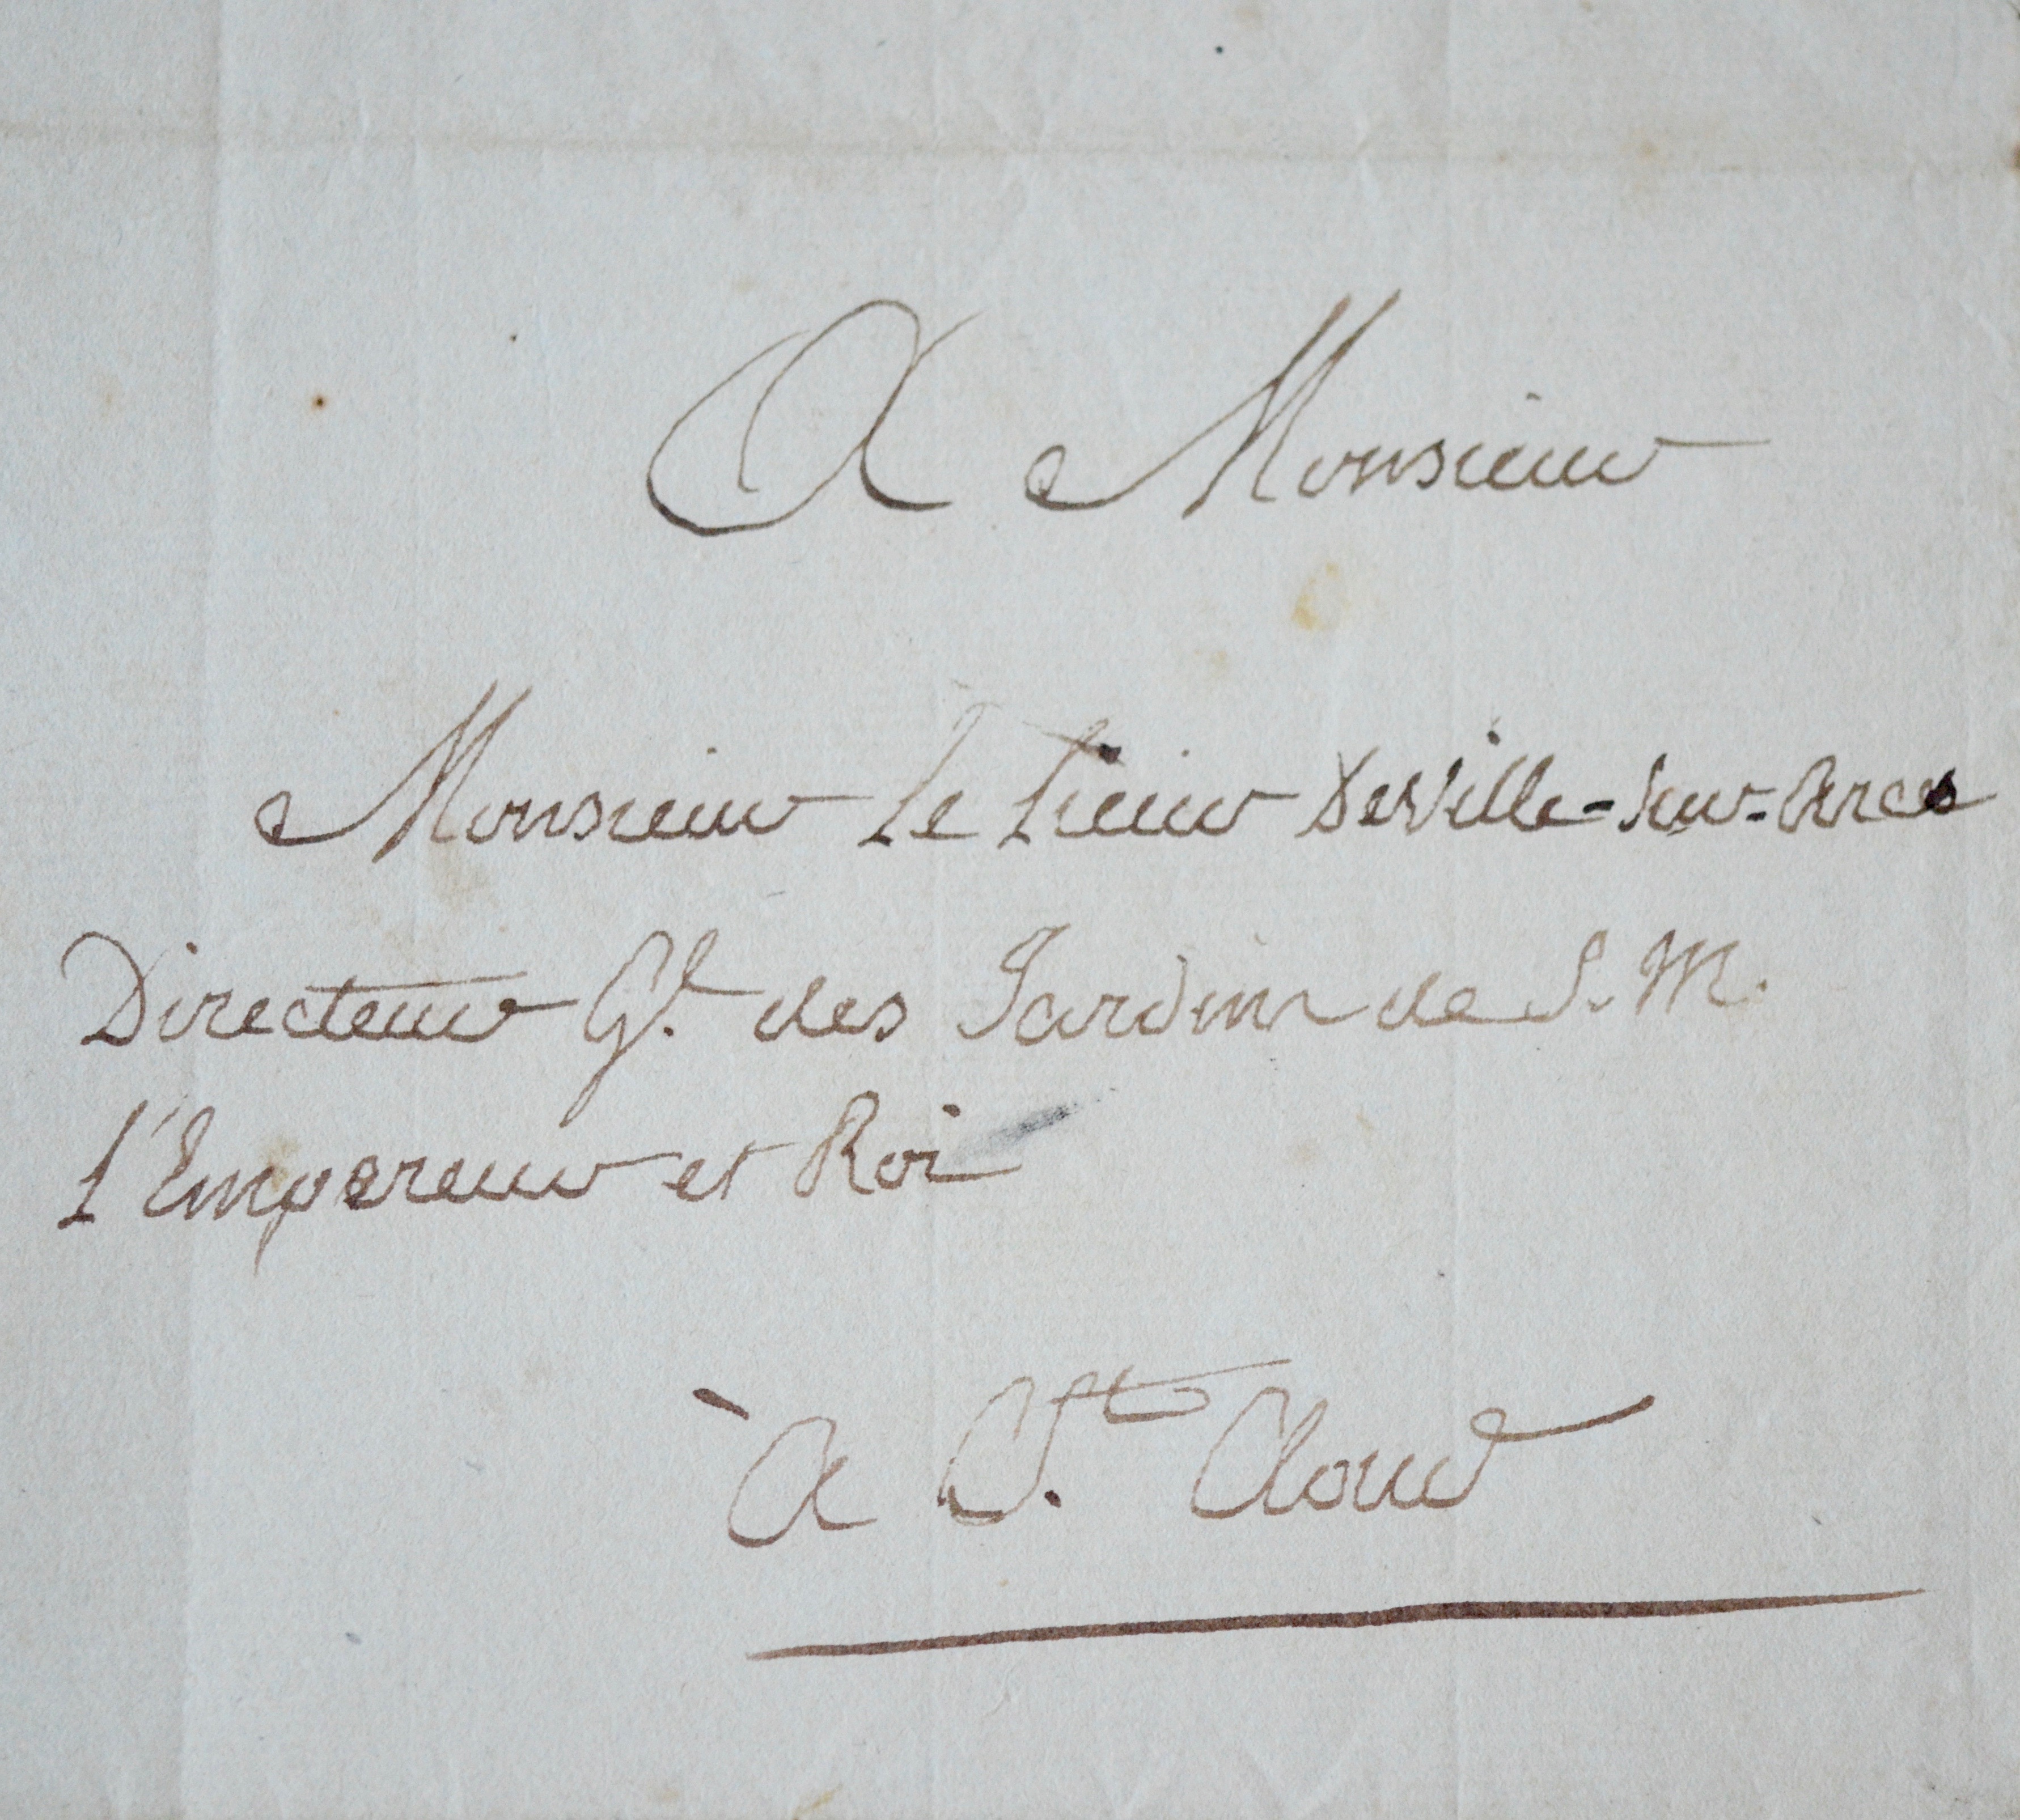 A Monsieur
Monsieur le lieur de Ville-sur-Arce
Directeur Gl. des Jardins de S. M.
l'Empereur et Roi
à St. Cloud